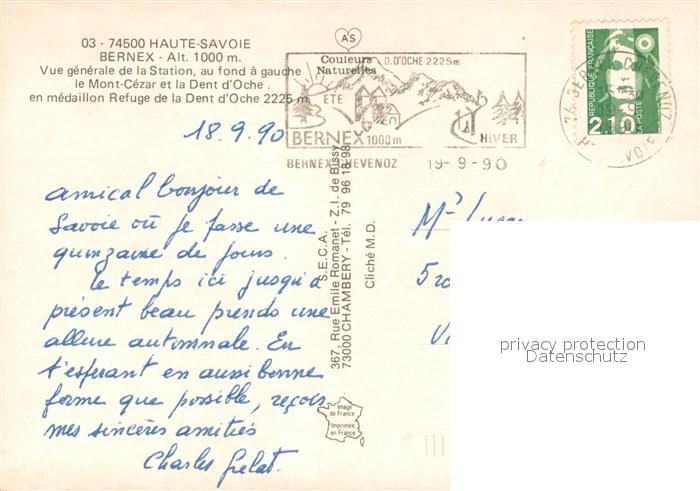 03 - 74500 HAUTE-SAVOIE
BERNEX - Alt. 1000 m.
Vue générale de la Station, au fond à gauche
le Mont-Cézar et la Dent d'Oche.
en médaillon Refuge de la Dent d'Oche 2225 m
18.9.90
amical bonjour de
Savoie où je passe une
quinzaine de jours.
le temps ici jusqu'à
présent beau prends une
allure automnale. En
t'esperant en aussi bonne
forme que possible, reçois
mes sincères amitiés
Charles
AS
Couleurs
Naturelles
D.D'OCHE 2225m
ETE
BERNEX 1000m
HIVER
19-9-90
S.E.C.A.
367, Rue Emile Romanet - Z.I. de Bissy
73000 CHAMBERY - Tél. 79 96 18 98
Cliché M.D.
Image
de France
Imprimée
en France
REPUBLIQUE FRANÇAISE
2,10
LA POSTE
Mr
privacy protection
Datenschutz